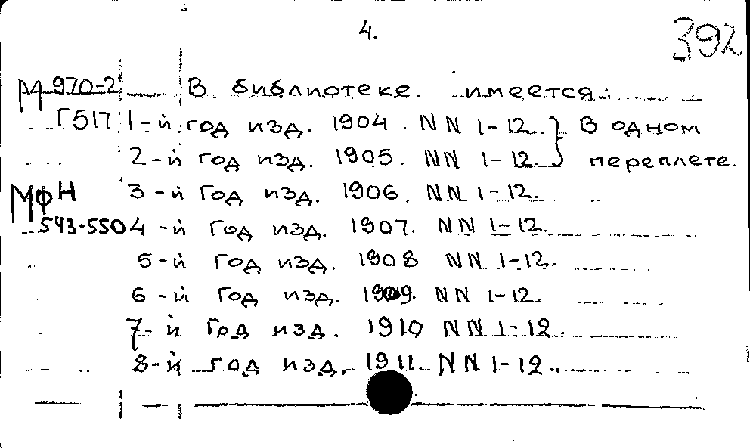 4.
392
М 970-2 В библиотеке имеется:
Г517 1-й год изд. 1904. NN 1-12. } В одном
2-й год изд. 1905. NN 1-12. } переплете.
МФН 3-й год изд. 1906. NN 1-12.
543-550 4-й год изд. 1907. NN 1-12.
5-й год изд. 1908 NN 1-12.
6-й год изд. 1909. NN 1-12.
7-й год изд. 1910 NN 1-12.
8-й год изд. 1911. NN 1-12.